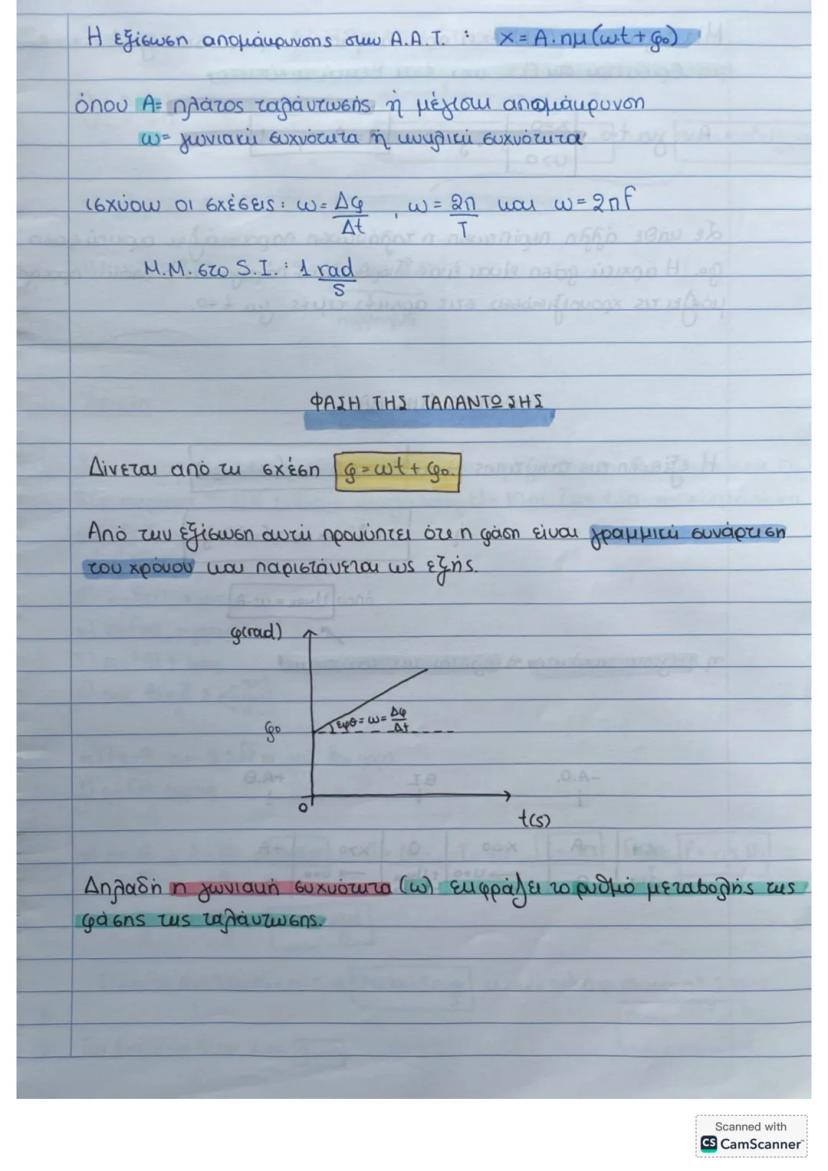 Η εξίσωση απομάκρυνσης στην Α.Α.Τ. : x = A·ημ(ωt + φ₀)
όπου A= πλάτος ταλάντωσης ή μέγιστη απομάκρυνση
ω= γωνιακή συχνότητα ή κυκλική συχνότητα
ισχύουν οι σχέσεις: ω = Δφ/Δt , ω = 2π/T και ω = 2πf
Μ.Μ. στο S.I. : 1 rad/s
ΦΑΣΗ ΤΗΣ ΤΑΛΑΝΤΩΣΗΣ
Δίνεται από τη σχέση φ = ωt + φ₀.
Από την εξίσωση αυτή προκύπτει ότι η φάση είναι γραμμική συνάρτηση
του χρόνου και παριστάνεται ως εξής.
φ(rad)
φ₀
εφθ = ω = Δφ/Δt
0
t(s)
Δηλαδή η γωνιακή συχνότητα (ω) εκφράζει το ρυθμό μεταβολής της
φάσης της ταλάντωσης.
Scanned with
CS CamScanner